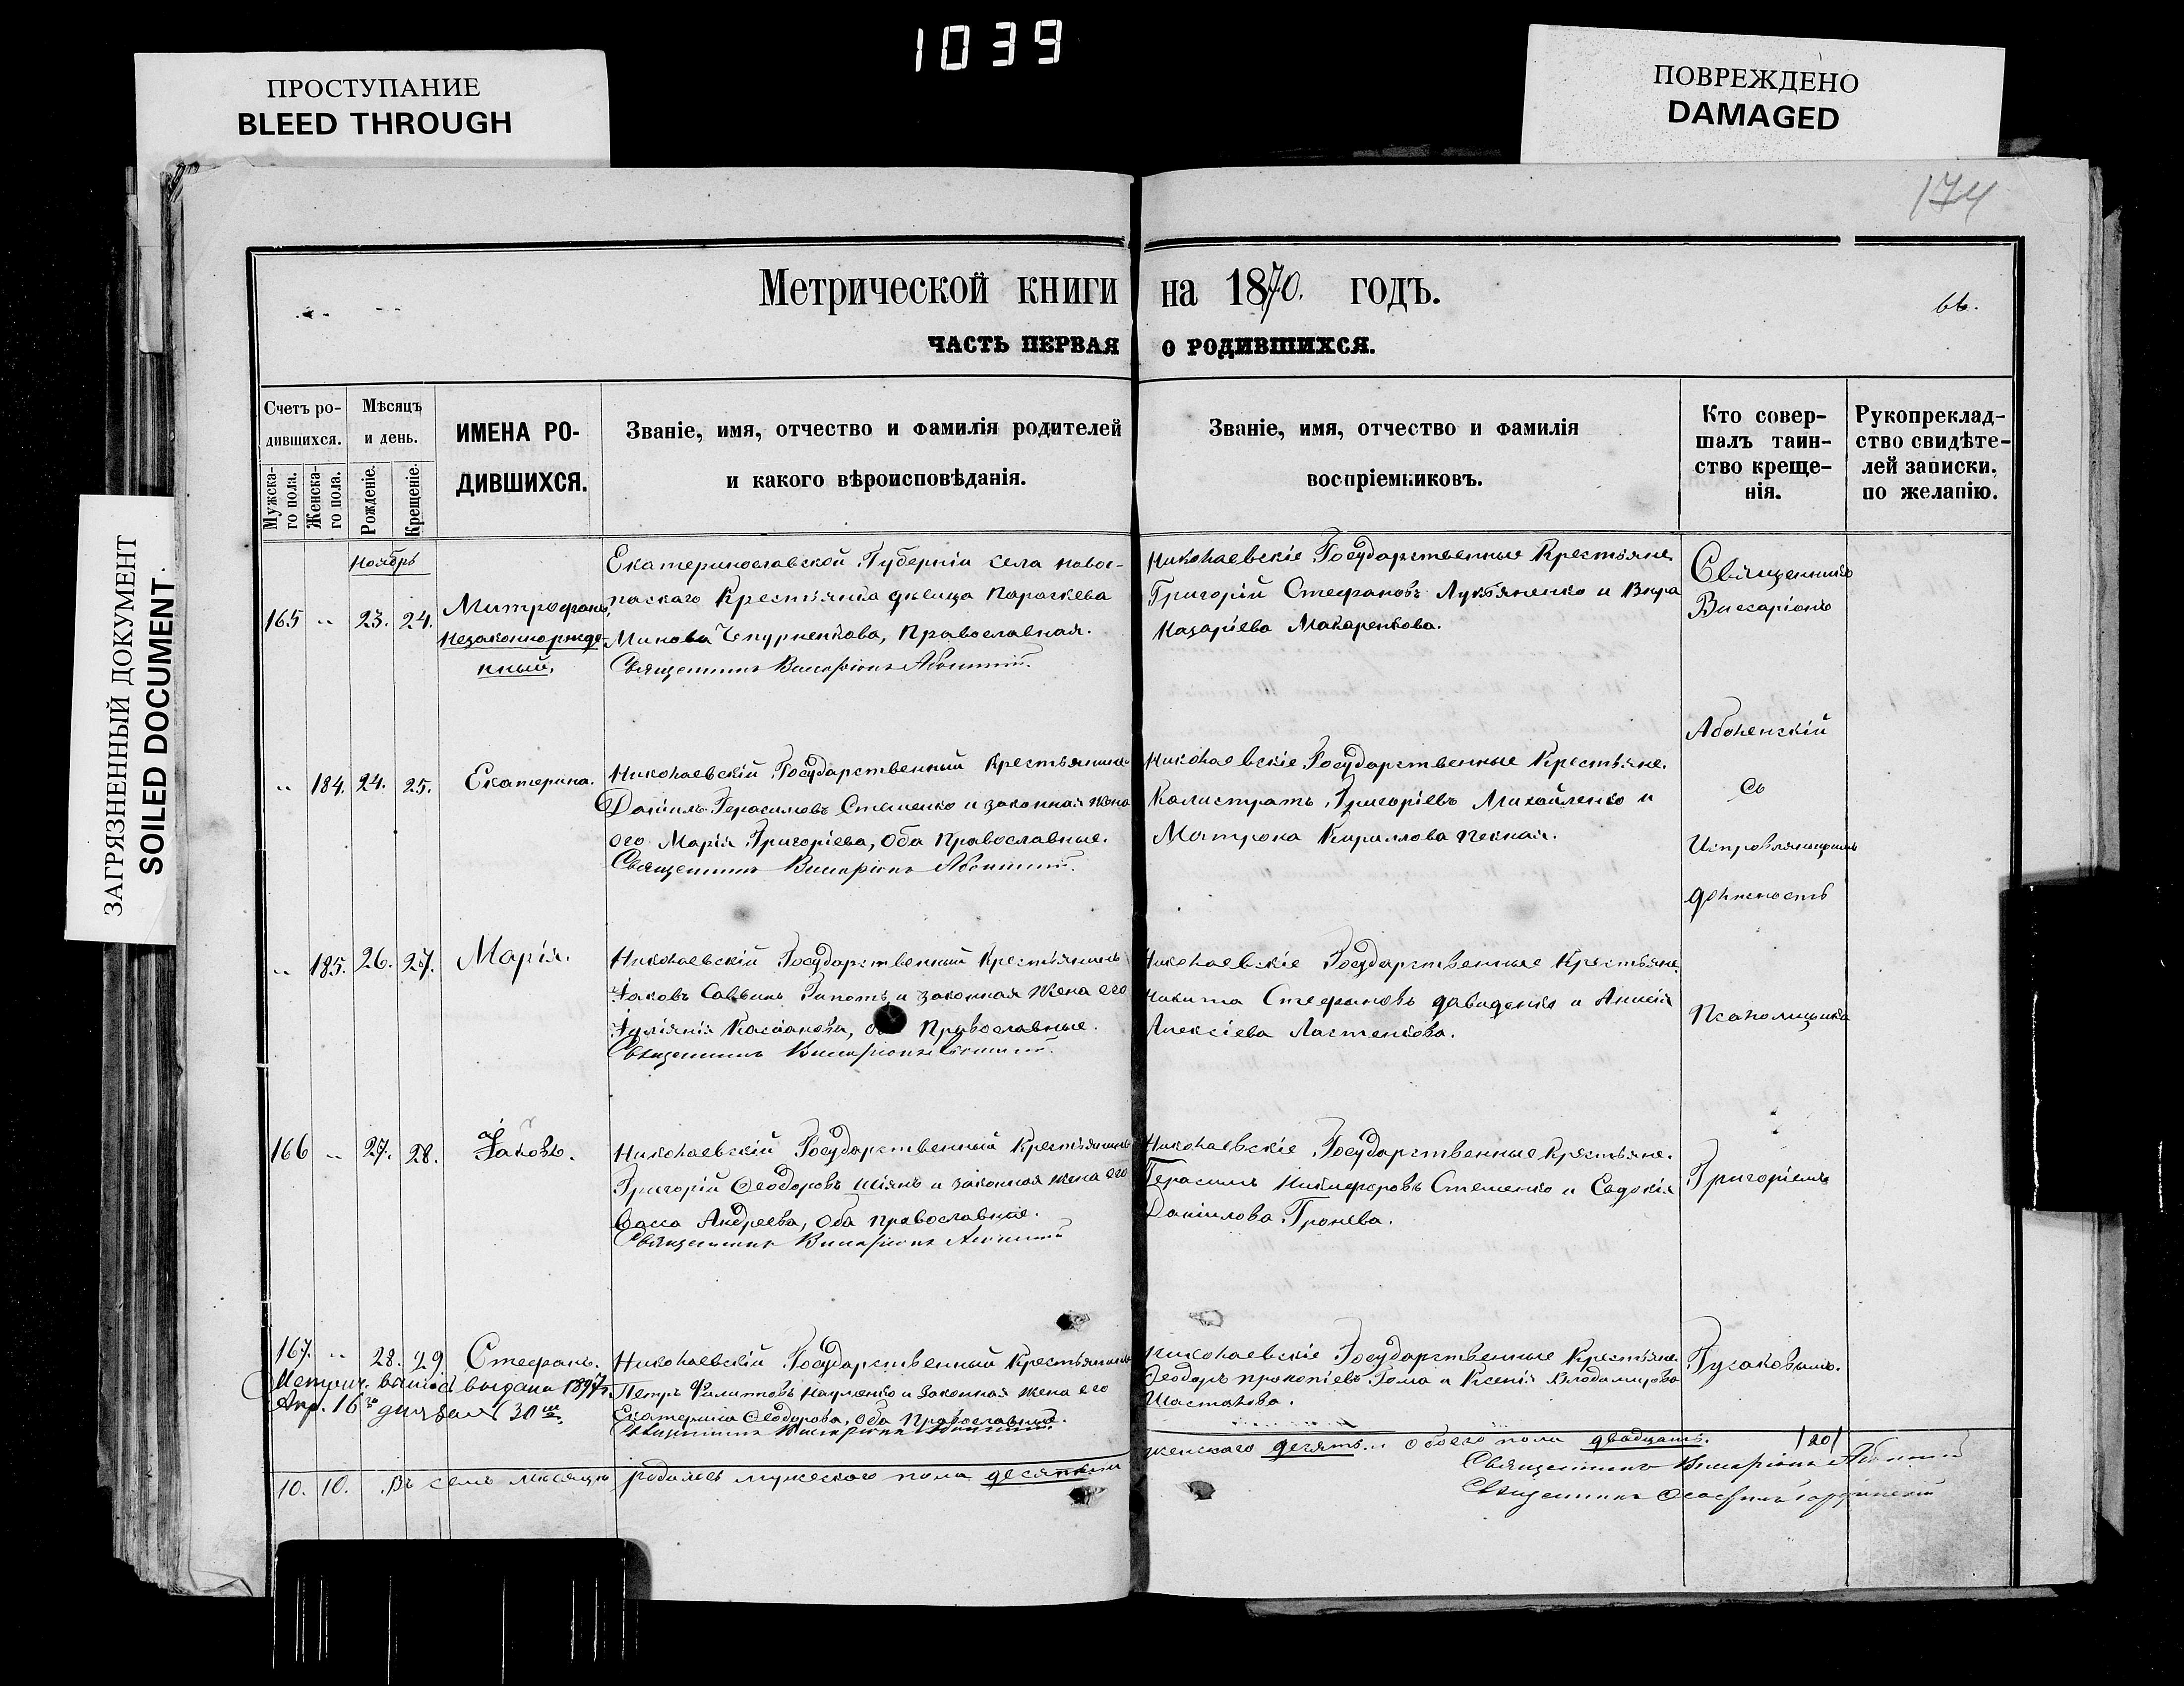 1039
ПРОСТУПАНИЕ
BLEED THROUGH
ПОВРЕЖДЕНО
DAMAGED
ЗАГРЯЗНЕННЫЙ ДОКУМЕНТ
SOILED DOCUMENT
174
Метрической книги на 1870. годъ.
ЧАСТЬ ПЕРВАЯ О РОДИВШИХСЯ.
Счетъ родившихся.
Мужскаго пола.
Женскаго пола.
Мѣсяцъ и день.
Рожденіе.
Крещеніе.
ИМЕНА РО-
ДИВШИХСЯ.
Званіе, имя, отчество и фамилія родителей
и какого вѣроисповѣданія.
Званіе, имя, отчество и фамилія
воспріемниковъ.
Кто совер-
шалъ таин-
ство креще-
нія.
Рукоприклад-
ство свидѣте-
лей записки.
по желанію.
Ноябрь
165 " 23. 24.
Митрофанъ,
незаконнорожде-
нный,
Екатеринославской Губерніи села
Крестьянка дѣвица Параскева
Минова Чепурненкова, Православная.
Священникъ Виссаріонъ
Николаевскіе Государственные Крестьяне
Григорій Стефановъ Лукьяненко и Вѣра
Назаріева Макаренкова.
" 184. 24. 25.
Екатерина.
Николаевскій Государственный Крестьянинъ
Даніилъ Герасимовъ Стеценко и законная жена
его Марія Григоріева, оба Православные.
Священникъ Виссаріонъ
Николаевскіе Государственные Крестьяне.
Калистратъ Григоріевъ Михайленко и
Матрона Кириллова
" 185. 26. 27.
Марія.
Николаевскій Государственный Крестьянинъ
Іаковъ Саввинъ и законная жена его
Іуліанія Касіанова, Православные.
Священникъ Виссаріонъ
Николаевскіе Государственные Крестьяне.
Никита Стефановъ Давиденко и
Алексіева Ластенкова.
166 " 27. 28.
Іаковъ.
Николаевскій Государственный Крестьянинъ
Григорій Ѳеодоровъ Шіянъ и законная жена его
Васса Андреева, оба православные.
Священникъ Виссаріонъ
Николаевскіе Государственные Крестьяне.
Герасимъ Никифоровъ Стеценко и Евдокія
Даніилова
167. " 28. 29
Стефанъ.
выдана 1897 г.
Апр. 16
Николаевскій Государственный Крестьянинъ
Петръ Филипповъ Науменко и законная жена его
Екатерина Ѳеодорова, оба Православные.
Священникъ Виссаріонъ
Николаевскіе Государственные Крестьяне.
Ѳеодоръ Прокопіевъ и Ксенія Владимірова
Священникъ
Виссаріонъ
Аболенскій
съ
Исправляющимъ
должность
Псаломщика
Григоріемъ
Гусаковымъ.
10. 10. Въ семъ мѣсяцѣ родилось мужескаго пола десять и
женскаго десять. обоего пола двадцать. /20/
Священникъ Виссаріонъ
Священникъ